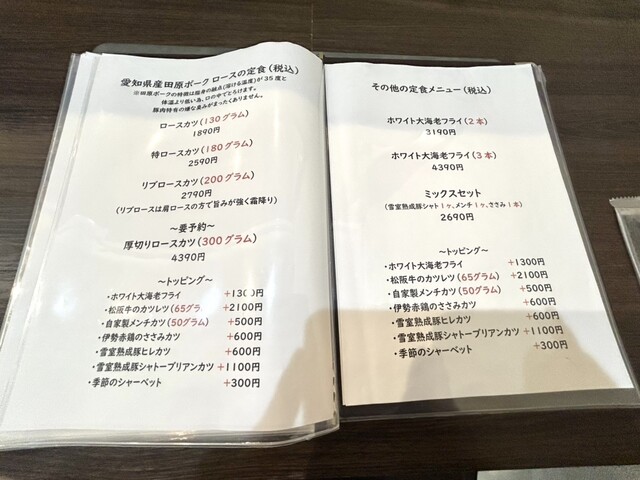 愛知県産田原ポーク ロースの定食(税込)
※田原ポークの特徴は脂身の融点(溶ける温度)が35度と
体温より低い為、口の中でとろけます。
豚肉特有の嫌な臭みがまったくありません。
ロースカツ(130グラム)
1890円
特ロースカツ(180グラム)
2590円
リブロースカツ(200グラム)
2790円
(リブロースは肩ロースの方で旨みが強く霜降り)
～要予約～
厚切りロースカツ(300グラム)
4390円
～トッピング～
・ホワイト大海老フライ +1300円
・松阪牛のカツレツ(65グラ +2100円
・自家製メンチカツ(50グラム) +500円
・伊勢赤鶏のささみカツ +600円
・雪室熟成豚ヒレカツ +600円
・雪室熟成豚シャトーブリアンカツ +1100円
・季節のシャーベット +300円
その他の定食メニュー(税込)
ホワイト大海老フライ(2本)
3190円
ホワイト大海老フライ(3本)
4390円
ミックスセット
(雪室熟成豚シャト1ヶ、メンチ1ヶ、ささみ1本)
2690円
～トッピング～
・ホワイト大海老フライ +1300円
・松阪牛のカツレツ(65グラム) +2100円
・自家製メンチカツ(50グラム) +500円
・伊勢赤鶏のささみカツ +600円
・雪室熟成豚ヒレカツ +600円
・雪室熟成豚シャトーブリアンカツ +1100円
・季節のシャーベット +300円